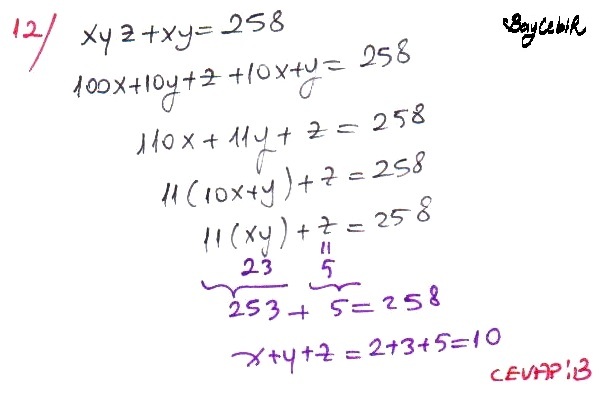 12/ xyz+xy=258
BayCebiR
100x+10y+z+10x+y=258
110x+11y+z=258
11(10x+y)+z=258
11(xy)+z=258
23 5
253+5=258
x+y+z=2+3+5=10
CEVAP:B